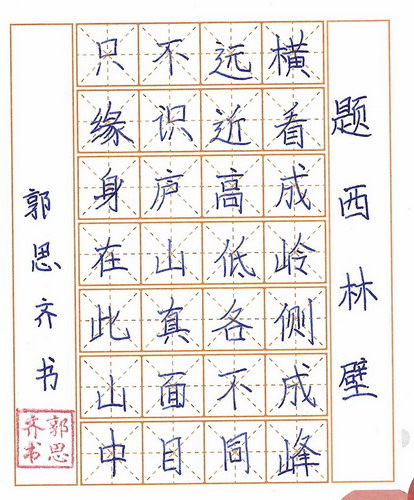 题西林壁
横看成岭侧成峰
远近高低各不同
不识庐山真面目
只缘身在此山中
郭思齐书
郭思
齐书